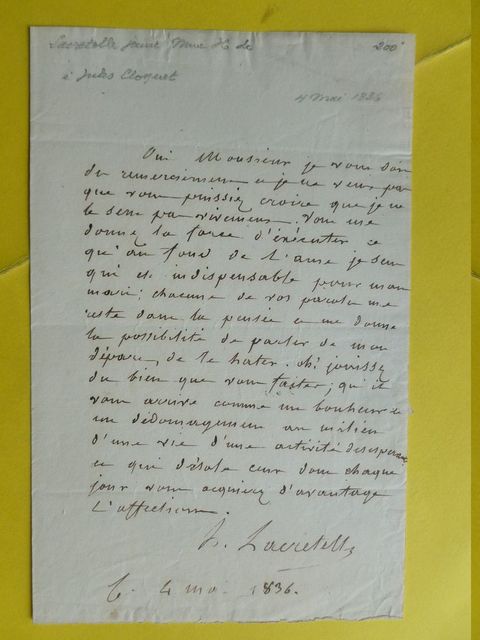 Lacretelle jeune Mme H. de
à Jules Cloquet
200
4 Mai 1836
Oui Monsieur je vous dois
du remerciement et je ne veux pas
que vous puissiez croire que je ne
le sens pas vivement. Vous me
donnez la force d'exécuter ce
qu'au fond de l'ame je sens
qui est indispensable pour mon
mari; chacune de vos paroles me
reste dans la pensée et me donne
la possibilité de parler de mon
départ, de le hater. oh! jouissez
du bien que vous faites; qu'il
vous arrive comme un bonheur et
un dédomagement au milieu
d'une vie d'une activité désesperante
ce qui désole ceux dont chaque
jour vous acquierez d'avantage
L'affection.
H. Lacretelle
C. 4 mai 1836.